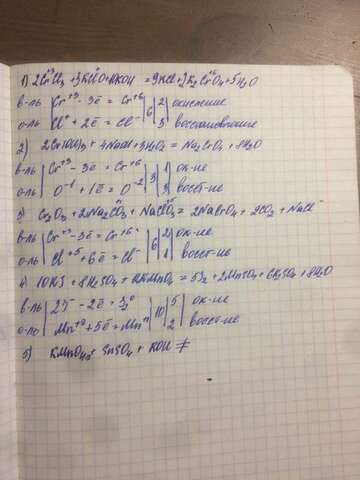 1) 2CrCl₃ + 3KClO + 10KOH = 9KCl + 2K₂CrO₄ + 5H₂O
в-ль | Cr⁺³ - 3ē = Cr⁺⁶ | 6 | 2 | окисление
о-ль | Cl⁺ + 2ē = Cl⁻ | 3 восстановление
2) 2Cr(OH)₃ + 4NaOH + 3H₂O₂ = Na₂CrO₄ + 8H₂O
в-ль | Cr⁺³ - 3ē = Cr⁺⁶ | 3 | 1 | ок-ие
о-ль | O⁻¹ + 1ē = O⁻² | 3 | восст-ие
3) Cr₂O₃ + 2Na₂CO₃ + NaClO₃ = 2Na₂CrO₄ + 2CO₂ + NaCl
в-ль | Cr⁺³ - 3ē = Cr⁺⁶ | 6 | 2 | ок-ие
о-ль | Cl⁺⁵ + 6ē = Cl⁻ | 1 | восст-ие
4) 10KI + 8H₂SO₄ + 2KMnO₄ = 5I₂ + 2MnSO₄ + 6K₂SO₄ + 8H₂O
в-ль | 2I⁻ - 2ē = I₂⁰ | 10 | 5 | ок-ие
о-ль | Mn⁺⁷ + 5ē = Mn⁺² | 2 | восст-ие
5) KMnO₄ + SnSO₄ + KOH ≠